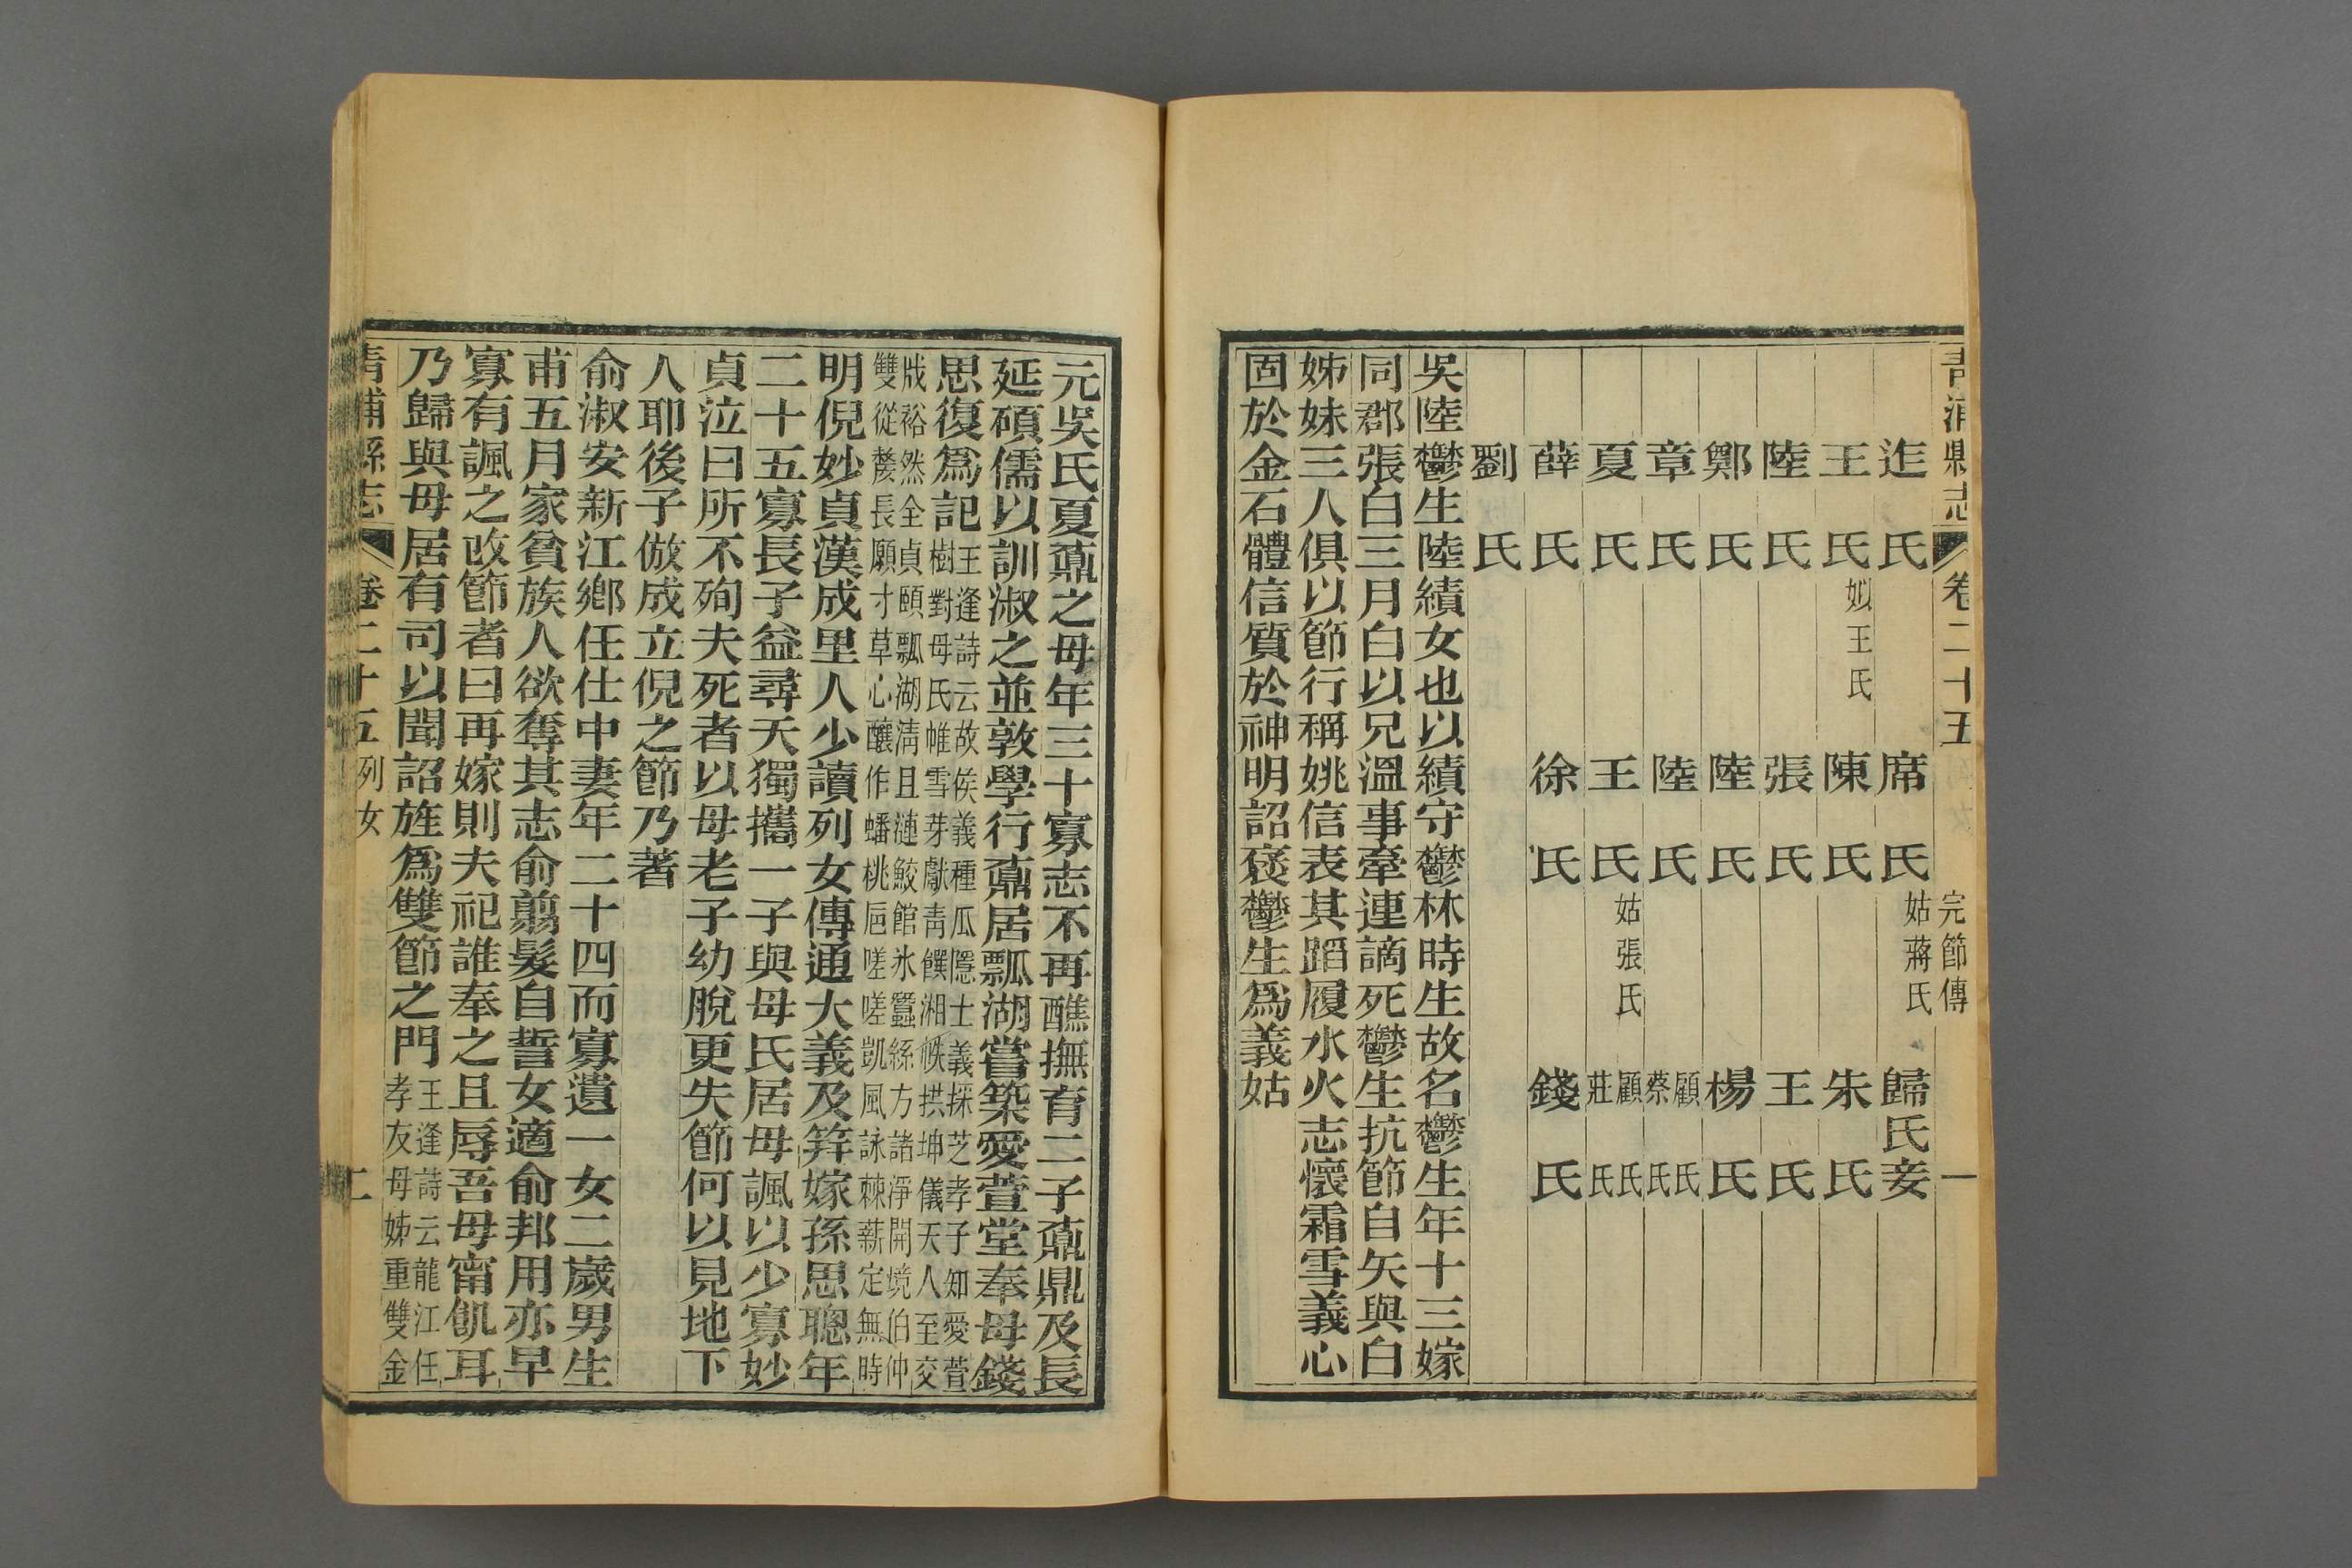 青浦縣志 卷二十五 完節傳 一
迮氏 席氏姑蔣氏 歸氏妾
王氏姒王氏 陳氏 朱氏
陸氏 張氏 王氏
鄭氏 陸氏 楊氏
章氏 陸氏 顧氏蔡氏
夏氏 王氏姑張氏 顧氏莊氏
薛氏 徐氏 錢氏
劉氏
吳陸鬱生陸績女也以績守鬱林時生故名鬱生年十三嫁
同郡張白三月白以兄溫事牽連謫死鬱生抗節自矢與白
姊妹三人俱以節行稱姚信表其蹈履水火志懷霜雪義心
固於金石體信質於神明詔褒鬱生爲義姑
元吳氏夏鼐之母年三十寡志不再醮撫育二子鼐鼎及長
延碩儒以訓淑之並敦學行鼐居瓢湖嘗築愛萱堂奉母錢
思復爲記王逢詩云故侯義種瓜隱士義採芝孝子知愛萱
樹對母氏帷雪芽獻青饌湘帙拱坤儀天人至交
戕裕然全貞頤瓢湖淸且漣鮫館氷蠶絲方諸淨開境伯仲
雙從嫠長願才草心釀作蟠桃巵嗟嗟凱風詠棘薪定無時
明倪妙貞漢成里人少讀列女傳通大義及筓嫁孫思聰年
二十五寡長子益尋夭獨攜一子與母氏居母諷以少寡妙
貞泣曰所不殉夫死者以母老子幼脫更失節何以見地下
人耶後子倣成立倪之節乃著
俞淑安新江鄉任仕中妻年二十四而寡遺一女二歲男生
甫五月家貧族人欲奪其志俞翦髮自誓女適俞邦用亦早
寡有諷之改節者曰再嫁則夫祀誰奉之且辱吾母甯飢耳
乃歸與母居有司以聞詔旌爲雙節之門王逢詩云龍江任
孝友母姊重雙金
青浦縣志 卷二十五 列女 二